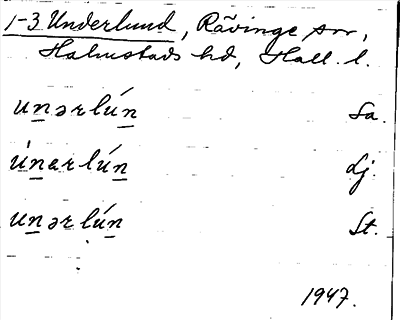 1-3 Underlund, Rävinge sn,
Halmstads hd, Hall. l.
unərlún Sa.
únərlún Lj.
unərlún St.
1947.